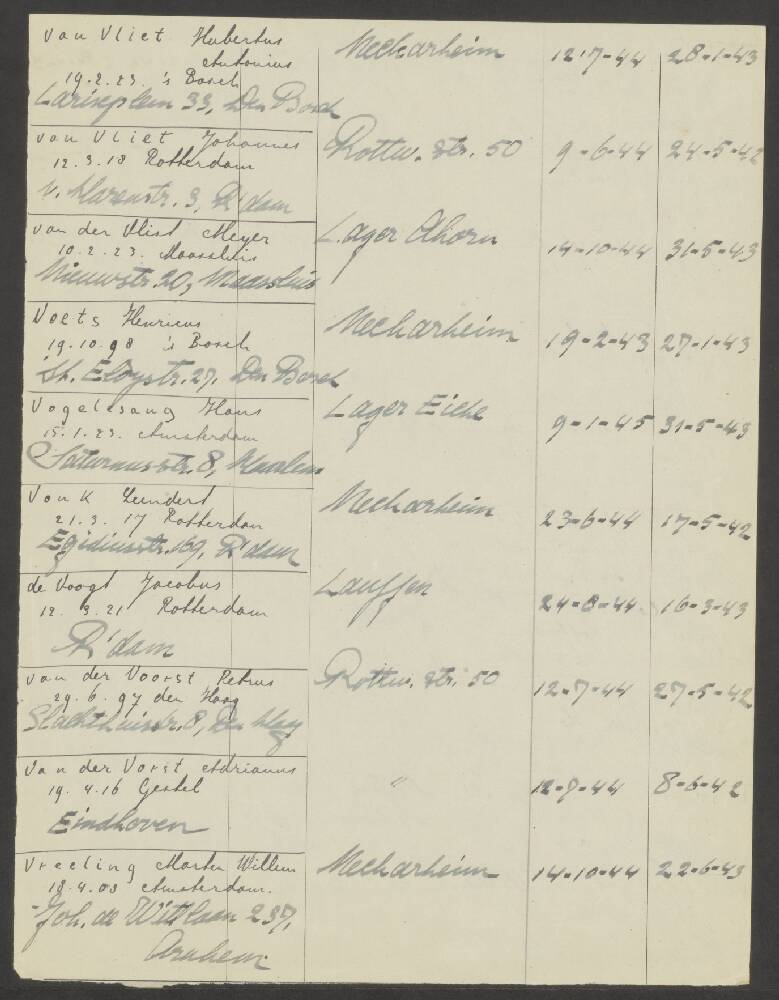 van Vliet Hubertus Antonius
19.2.23. 's Bosch
Larixplein 33, Den Bosch
Neckarheim 12-7-44 28-1-43
van Vliet Johannes
12.3.18 Rotterdam
3, R'dam
Rottw. str. 50 9-6-44 24-5-42
van der Vlist Meyer
10.2.23. Maassluis
Nieuwstr 20, Maassluis
Lager Ahorn 14-10-44 31-5-43
Voets Henricus
19.10.98 's Bosch
St. Eloystr. 27, Den Bosch
Neckarheim 19-2-43 27-1-43
Vogelesang Hans
15.1.23. Amsterdam
Saturnusstr. 8, Haarlem
Lager Eiche 9-1-45 31-5-43
Vonk Leendert
21.3.17 Rotterdam
Egidiusstr. 169, R'dam
Neckarheim 23-6-44 17-5-42
de Voogt Jacobus
12.3.21 Rotterdam
R'dam
Lauffen 24-8-44 16-3-43
van der Voorst Petrus
29.6.97 den Haag
Slachthuisstr. 8, Den Haag
Rottw. str. 50 12-7-44 27-5-42
van der Vorst Adrianus
19.4.16 Gestel
Eindhoven
" 12-7-44 8-6-42
Vreeling Marten Willem
18.4.03 Amsterdam.
Joh. de Wittlaan 237,
Arnhem
Neckarheim 14-10-44 22-6-43